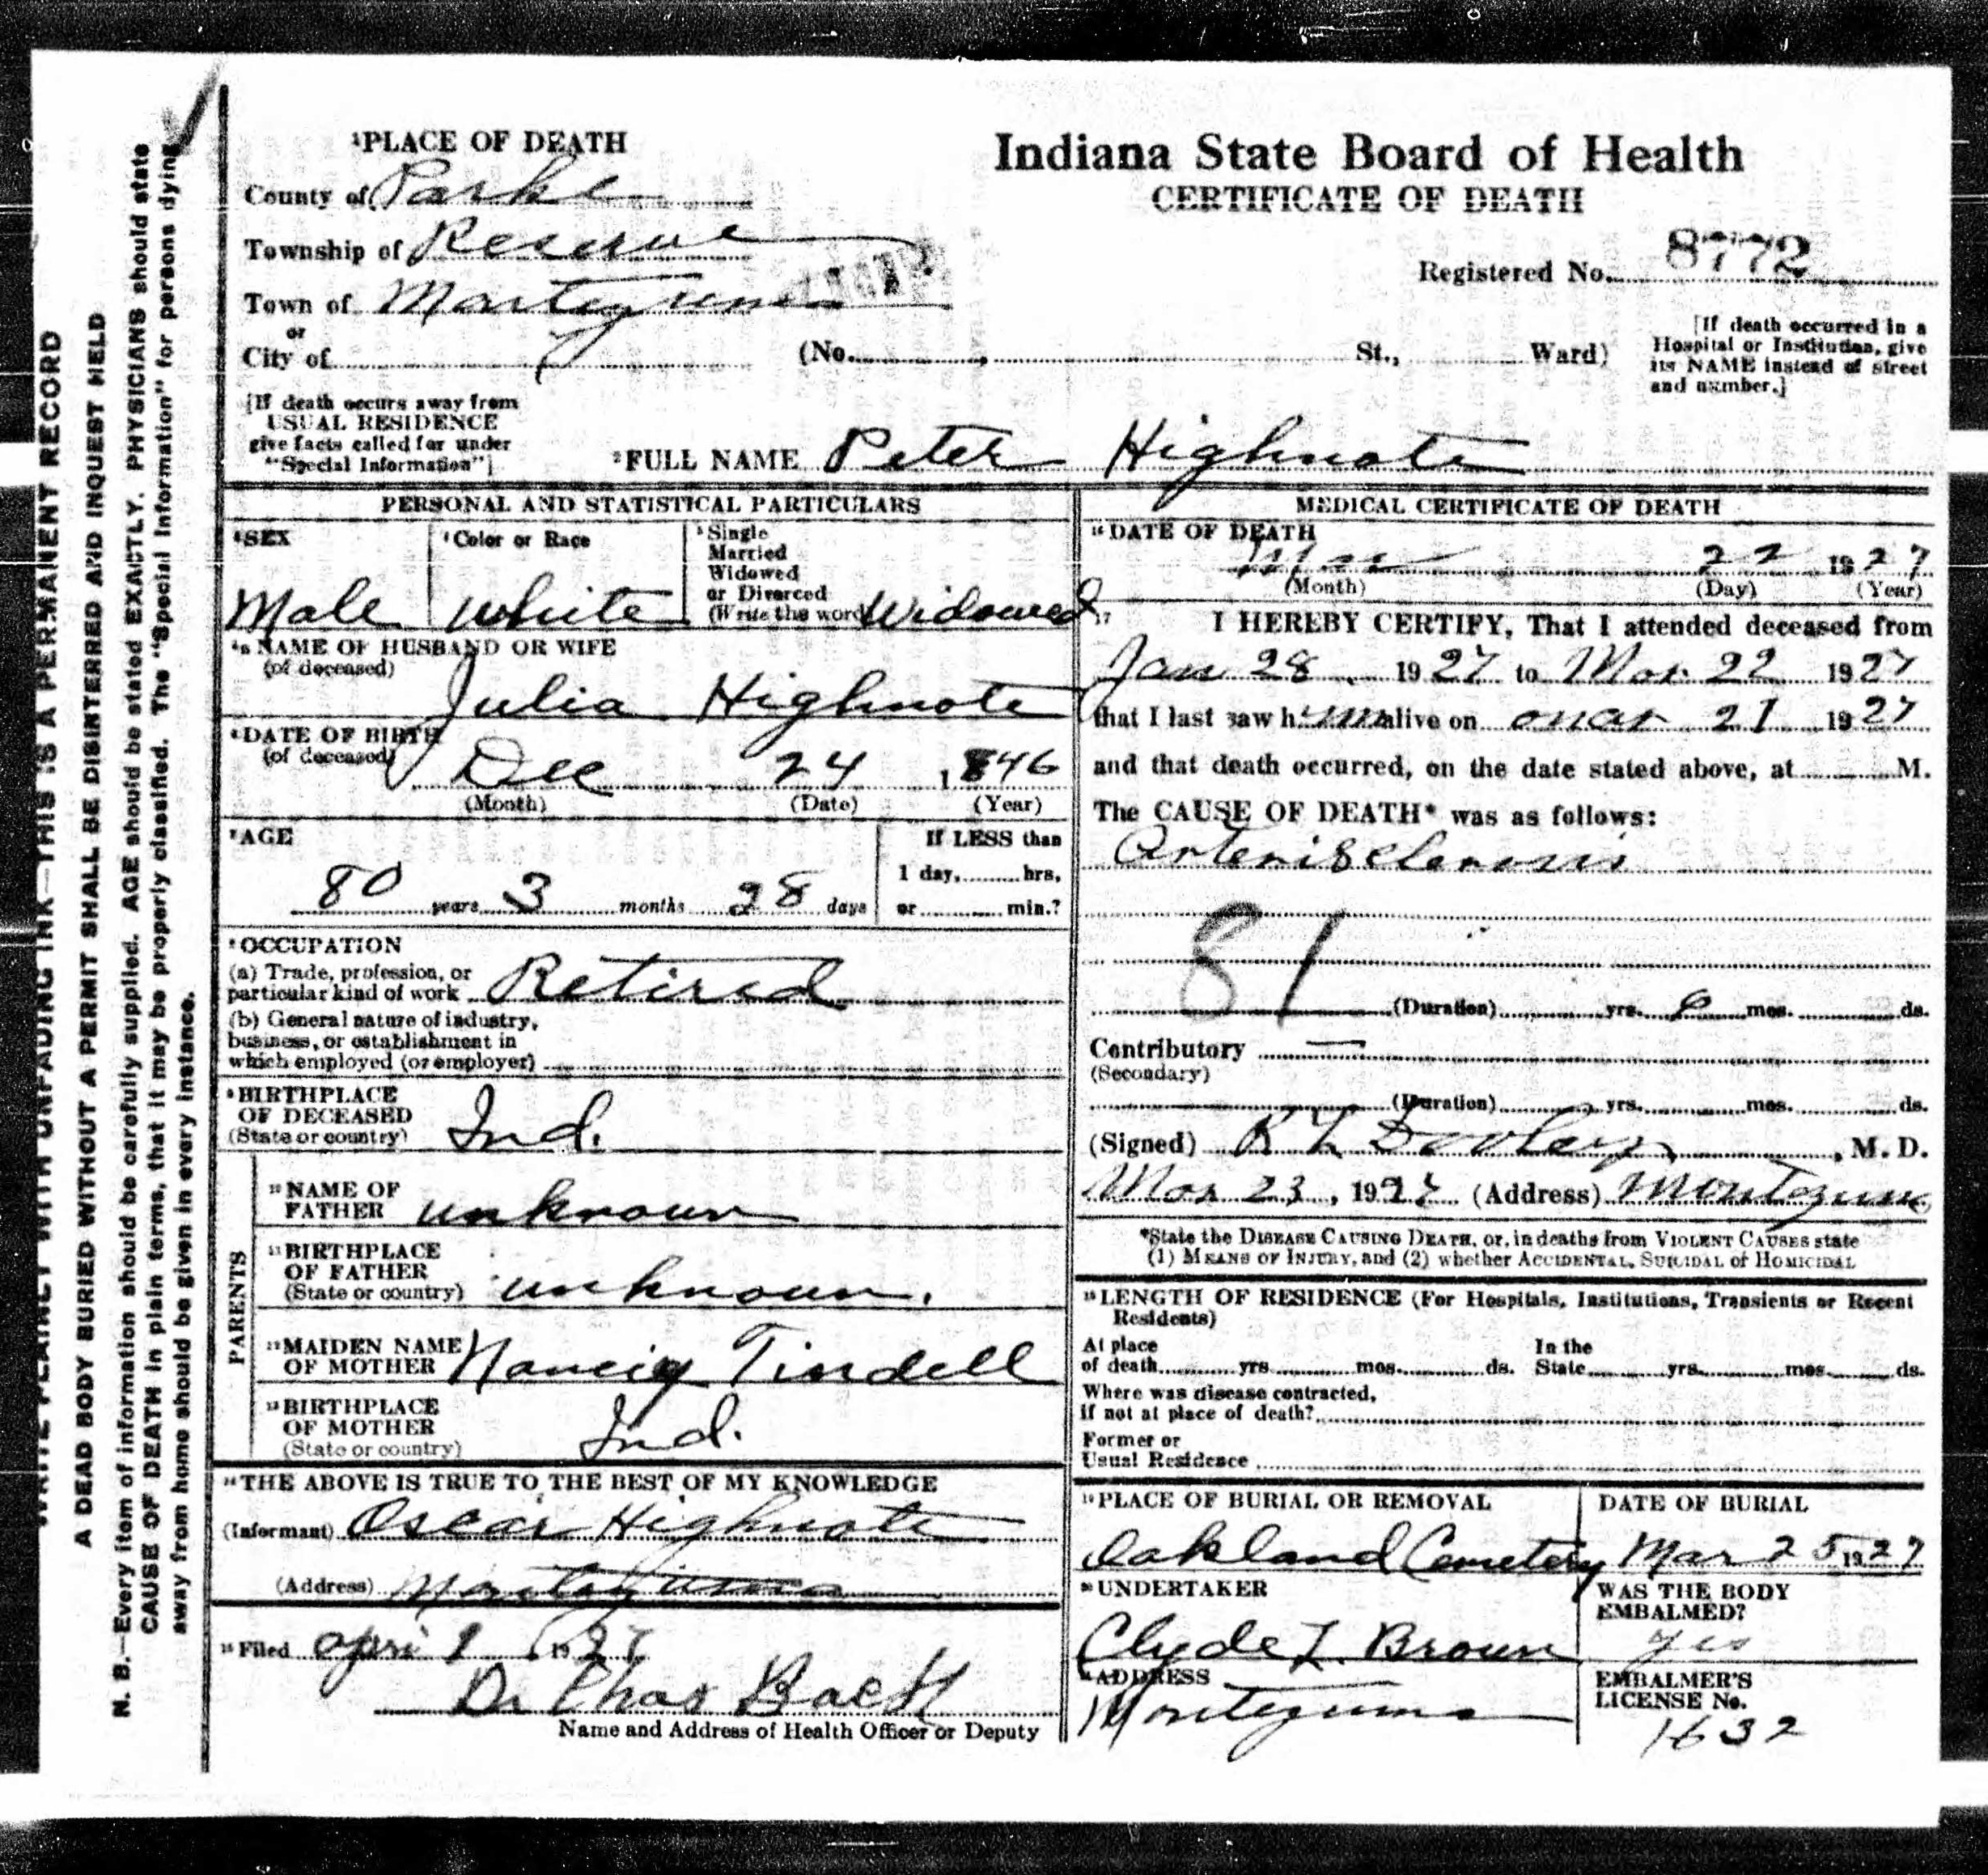 WRITE PLAINLY WITH UNFADING INK—THIS IS A PERMANENT RECORD
A DEAD BODY BURIED WITHOUT A PERMIT SHALL BE DISINTERRED AND INQUEST HELD
N. B.—Every item of information should be carefully supplied. AGE should be stated EXACTLY. PHYSICIANS should state
CAUSE OF DEATH in plain terms, that it may be properly classified. The "Special Information" for persons dying
away from home should be given in every instance.
1PLACE OF DEATH
County of Parke
Township of Reserve
Town of Montezuma
or
City of
Indiana State Board of Health
CERTIFICATE OF DEATH
Registered No. 8772
(No. , St., Ward)
[If death occurred in a
Hospital or Institution, give
its NAME instead of street
and number.]
[If death occurs away from
USUAL RESIDENCE
give facts called for under
"Special Information"]
2FULL NAME Peter Highnote
PERSONAL AND STATISTICAL PARTICULARS
SEX
Male
4Color or Race
White
5Single
Married
Widowed
or Divorced
(Write the word) Widowed
NAME OF HUSBAND OR WIFE
(of deceased)
Julia Highnote
6DATE OF BIRTH
(of deceased)
Dec 24 1846
(Month) (Date) (Year)
7AGE
80 years 3 months 28 days
If LESS than
1 day, hrs,
or min.?
8OCCUPATION
(a) Trade, profession, or
particular kind of work Retired
(b) General nature of industry,
business, or establishment in
which employed (or employer)
9BIRTHPLACE
OF DECEASED
(State or country) Ind.
PARENTS
10NAME OF
FATHER unknown
11BIRTHPLACE
OF FATHER
(State or country) unknown.
12MAIDEN NAME
OF MOTHER Nancy Tindell
13BIRTHPLACE
OF MOTHER
(State or country) Ind.
14THE ABOVE IS TRUE TO THE BEST OF MY KNOWLEDGE
(Informant) Oscar Highnote
(Address) Montezuma
15Filed April 1927
Dr Chas
Name and Address of Health Officer or Deputy
MEDICAL CERTIFICATE OF DEATH
16DATE OF DEATH
Mar 22 1927
(Month) (Day) (Year)
17 I HEREBY CERTIFY, That I attended deceased from
Jan 28 1927 to Mar. 22 1927
that I last saw him alive on Mar 21 1927
and that death occurred, on the date stated above, at M.
The CAUSE OF DEATH* was as follows:
Arterisclerosis
81
(Duration) yrs. 6 mos. ds.
Contributory —
(Secondary)
(Duration) yrs. mos. ds.
(Signed) R L Dooley, M. D.
Mar 23, 1927 (Address) Montezuma
*State the DISEASE CAUSING DEATH, or, in deaths from VIOLENT CAUSES state
(1) MEANS OF INJURY, and (2) whether ACCIDENTAL, SUICIDAL or HOMICIDAL
18LENGTH OF RESIDENCE (For Hospitals, Institutions, Transients or Recent
Residents)
At place
of death yrs mos. ds.
In the
State yrs. mos ds.
Where was disease contracted,
if not at place of death?
Former or
Usual Residence
19PLACE OF BURIAL OR REMOVAL
Oakland Cemetery
DATE OF BURIAL
Mar 25 1927
20UNDERTAKER
Clyde L. Brown
WAS THE BODY
EMBALMED?
yes
ADDRESS
Montezuma
EMBALMER'S
LICENSE No.
1632